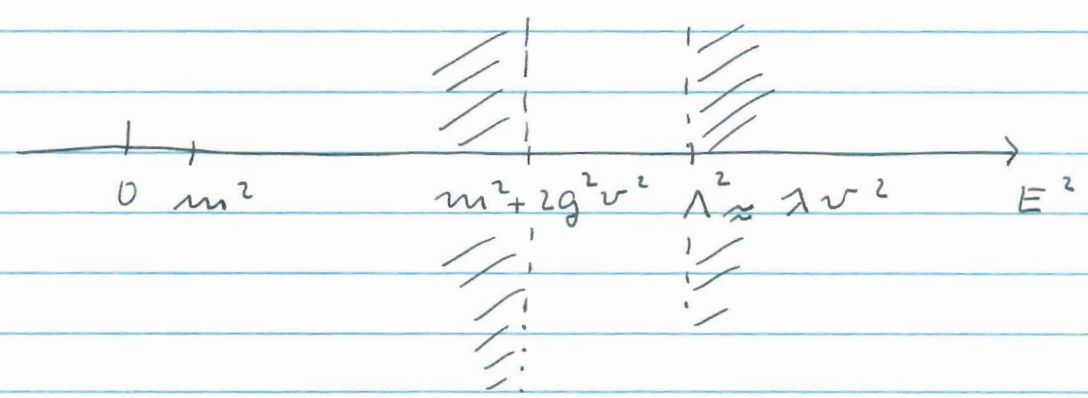 0 m² m²+2g²v² Λ² ≈ λv² E²